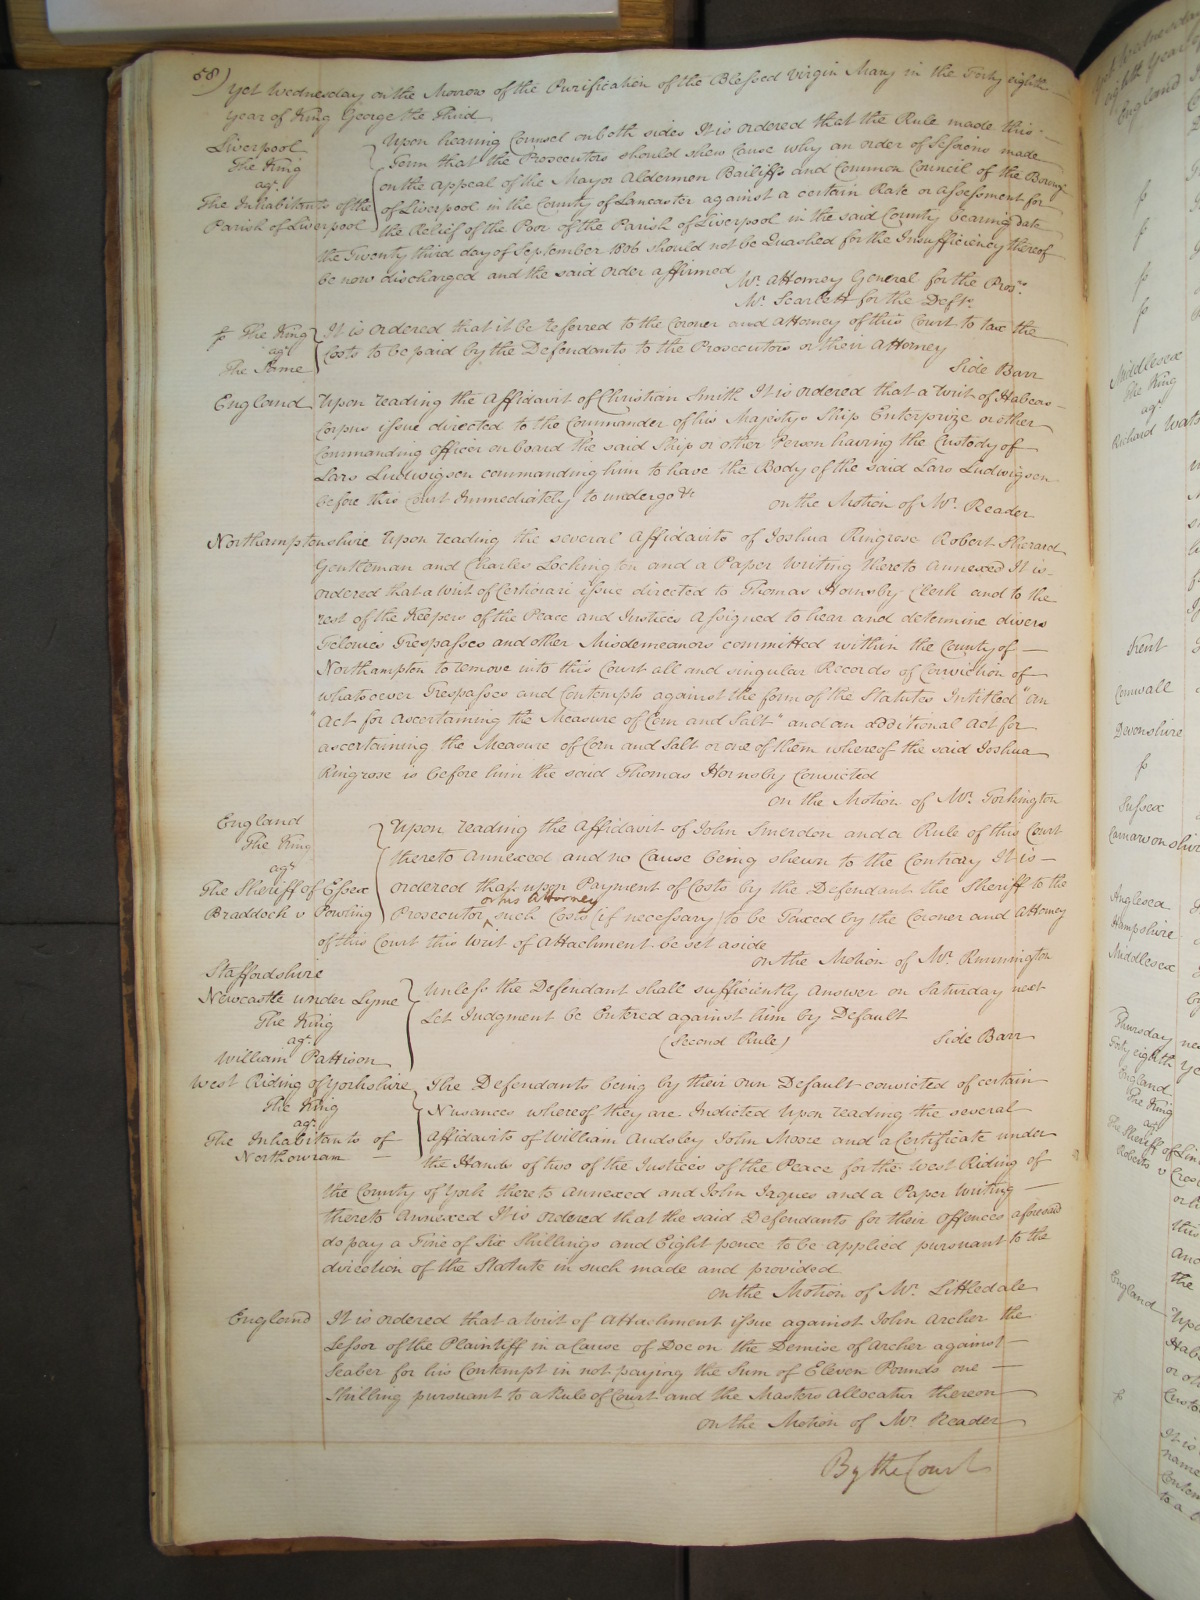 58)
Yet Wednesday on the Morrow of the Purification of the Blessed Virgin Mary in the Forty eighth
Year of King George the Third
Liverpool
The King
agt.
The Inhabitants of the
Parish of Liverpool
Upon hearing Counsel on both sides It is ordered that the Rule made this
Term that the Prosecutors should shew Cause why an order of Sessions made
on the Appeal of the Mayor Aldermen Bailiffs and Common Council of the Borough
of Liverpool in the County of Lancaster against a certain Rate or Assessment for
the Relief of the Poor of the Parish of Liverpool in the said County bearing date
the Twenty third day of September 1806 should not be Quashed for the Insufficiency thereof
be now discharged and the said Order affirmed
Mr. Attorney General for the Prosrs.
Mr. Scarlett for the Defts.
p The King
agt.
The Same
It is ordered that it be referred to the Coroner and Attorney of this Court to tax the
Costs to be paid by the Defendants to the Prosecutors or their Attorney
Side Barr
England
Upon reading the Affidavit of Christian Smith It is ordered that a Writ of Habeas
Corpus issue directed to the Commander of his Majestys Ship Enterprize or other
Commanding Officer on board the said Ship or other Person having the Custody of
Lars Ludwigsen commanding him to have the Body of the said Lars Ludwigsen
before this Court Immediately to undergo &c
on the Motion of Mr. Reader
Northamptonshire Upon reading the several Affidavits of Joshua Ringrose Robert Sherard
Gentleman and Charles Lockington and a Paper Writing thereto Annexed It is
ordered that a Writ of Certiorari issue directed to Thomas Hornsby Clerk and to the
rest of the Keepers of the Peace and Justices Assigned to hear and determine divers
Felonies Trespasses and other Misdemeanors committed within the County of
Northampton to remove into this Court all and singular Records of Conviction of
whatsoever Trespasses and Contempts against the form of the Statutes Intitled "an
"Act for ascertaining the Measure of Corn and Salt" and an additional Act for
ascertaining the Measure of Corn and Salt or one of them whereof the said Joshua
Ringrose is before him the said Thomas Hornsby Convicted
on the Motion of Mr. Torkington
England
The King
agt.
The Sheriff of Essex
Braddock v Powling
Upon reading the Affidavit of John Smerdon and a Rule of this Court
thereto Annexed and no Cause being shewn to the Contrary It is
ordered that upon Payment of Costs by the Defendant the Sheriff to the
or his Attorney
Prosecutor such Costs (if necessary) to be Taxed by the Coroner and Attorney
of this Court this Writ of Attachment be set aside
on the Motion of Mr. Runnington
Staffordshire
Newcastle under Lyme
The King
agt.
William Pattison
Unless the Defendant shall sufficiently Answer on Saturday next
Let Judgment be Entered against him by Default
(Second Rule) Side Barr
West Riding of Yorkshire
The King
agt.
The Inhabitants of
Northowram
The Defendants being by their own Default convicted of certain
Nusances whereof they are Indicted Upon reading the several
Affidavits of William Audsley John Moore and a Certificate under
the Hands of two of the Justices of the Peace for the West Riding of
the County of York thereto Annexed and John Jaques and a Paper Writing
thereto Annexed It is ordered that the said Defendants for their Offences aforesaid
do pay a Fine of Six Shillings and Eight pence to be applied pursuant to the
direction of the Statute in such made and provided
on the Motion of Mr. Littledale
England
It is ordered that a Writ of Attachment issue against John Archer the
Lessor of the Plaintiff in a Cause of Doe on the Demise of Archer against
Seaber for his Contempt in not paying the Sum of Eleven Pounds one
Shilling pursuant to a Rule of Court and the Masters Allocatur thereon
on the Motion of Mr. Reader
By the Court
Yet Wednesday
eighth Year
England
p
p
p
p
Middlesex
The King
agt.
Richard Wats
Kent
Cornwall
Devonshire
p
Sussex
Carnarvonshire
Anglesea
Hampshire
Middlesex
Thursday nex
Forty eighth Ye
England
The King
agt.
The Sheriff of Lin
Roberts v Cros
England
Upo
Habe
or oth
Custo
p
It is
name
Contem
to a